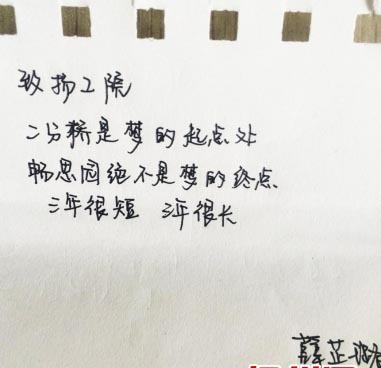 致扬工院
二分桥是梦的起点处
畅思园绝不是梦的终点
三年很短 三年很长